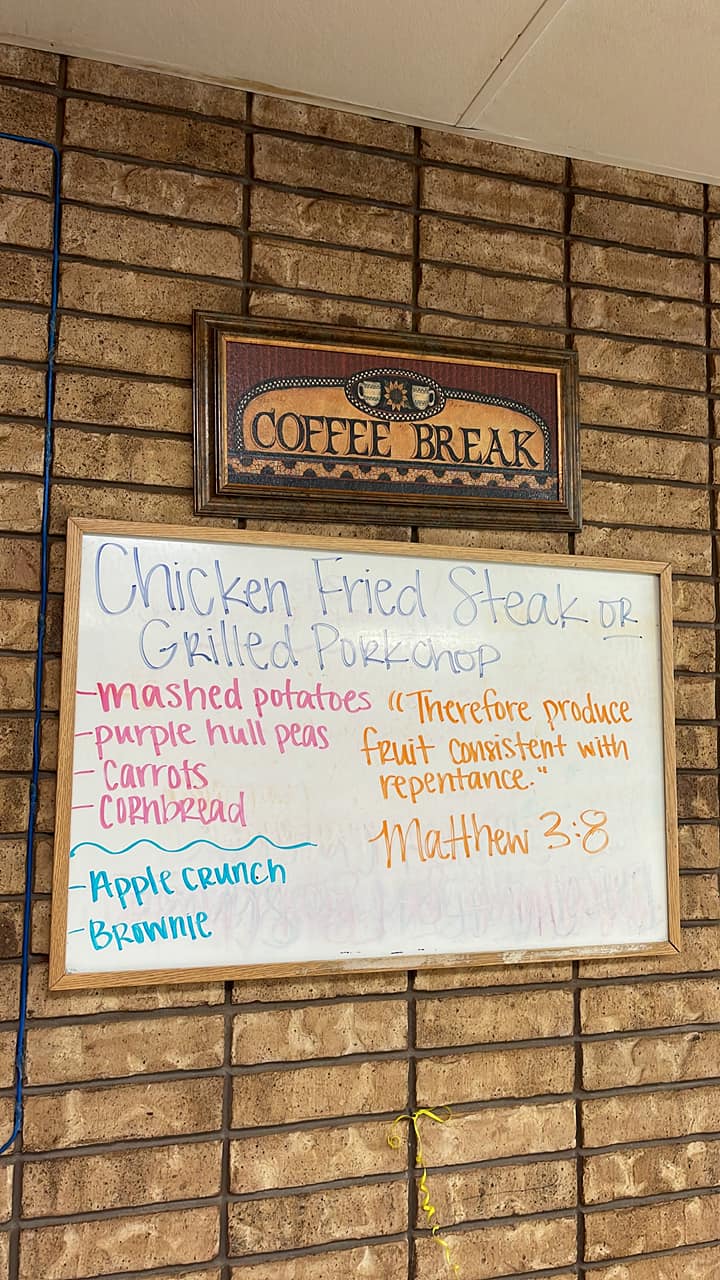 COFFEE BREAK
Chicken Fried Steak OR
Grilled Porkchop
-mashed potatoes
-purple hull peas
-carrots
-cornbread
"Therefore produce
fruit consistent with
repentance."
Matthew 3:8
-Apple crunch
-Brownie